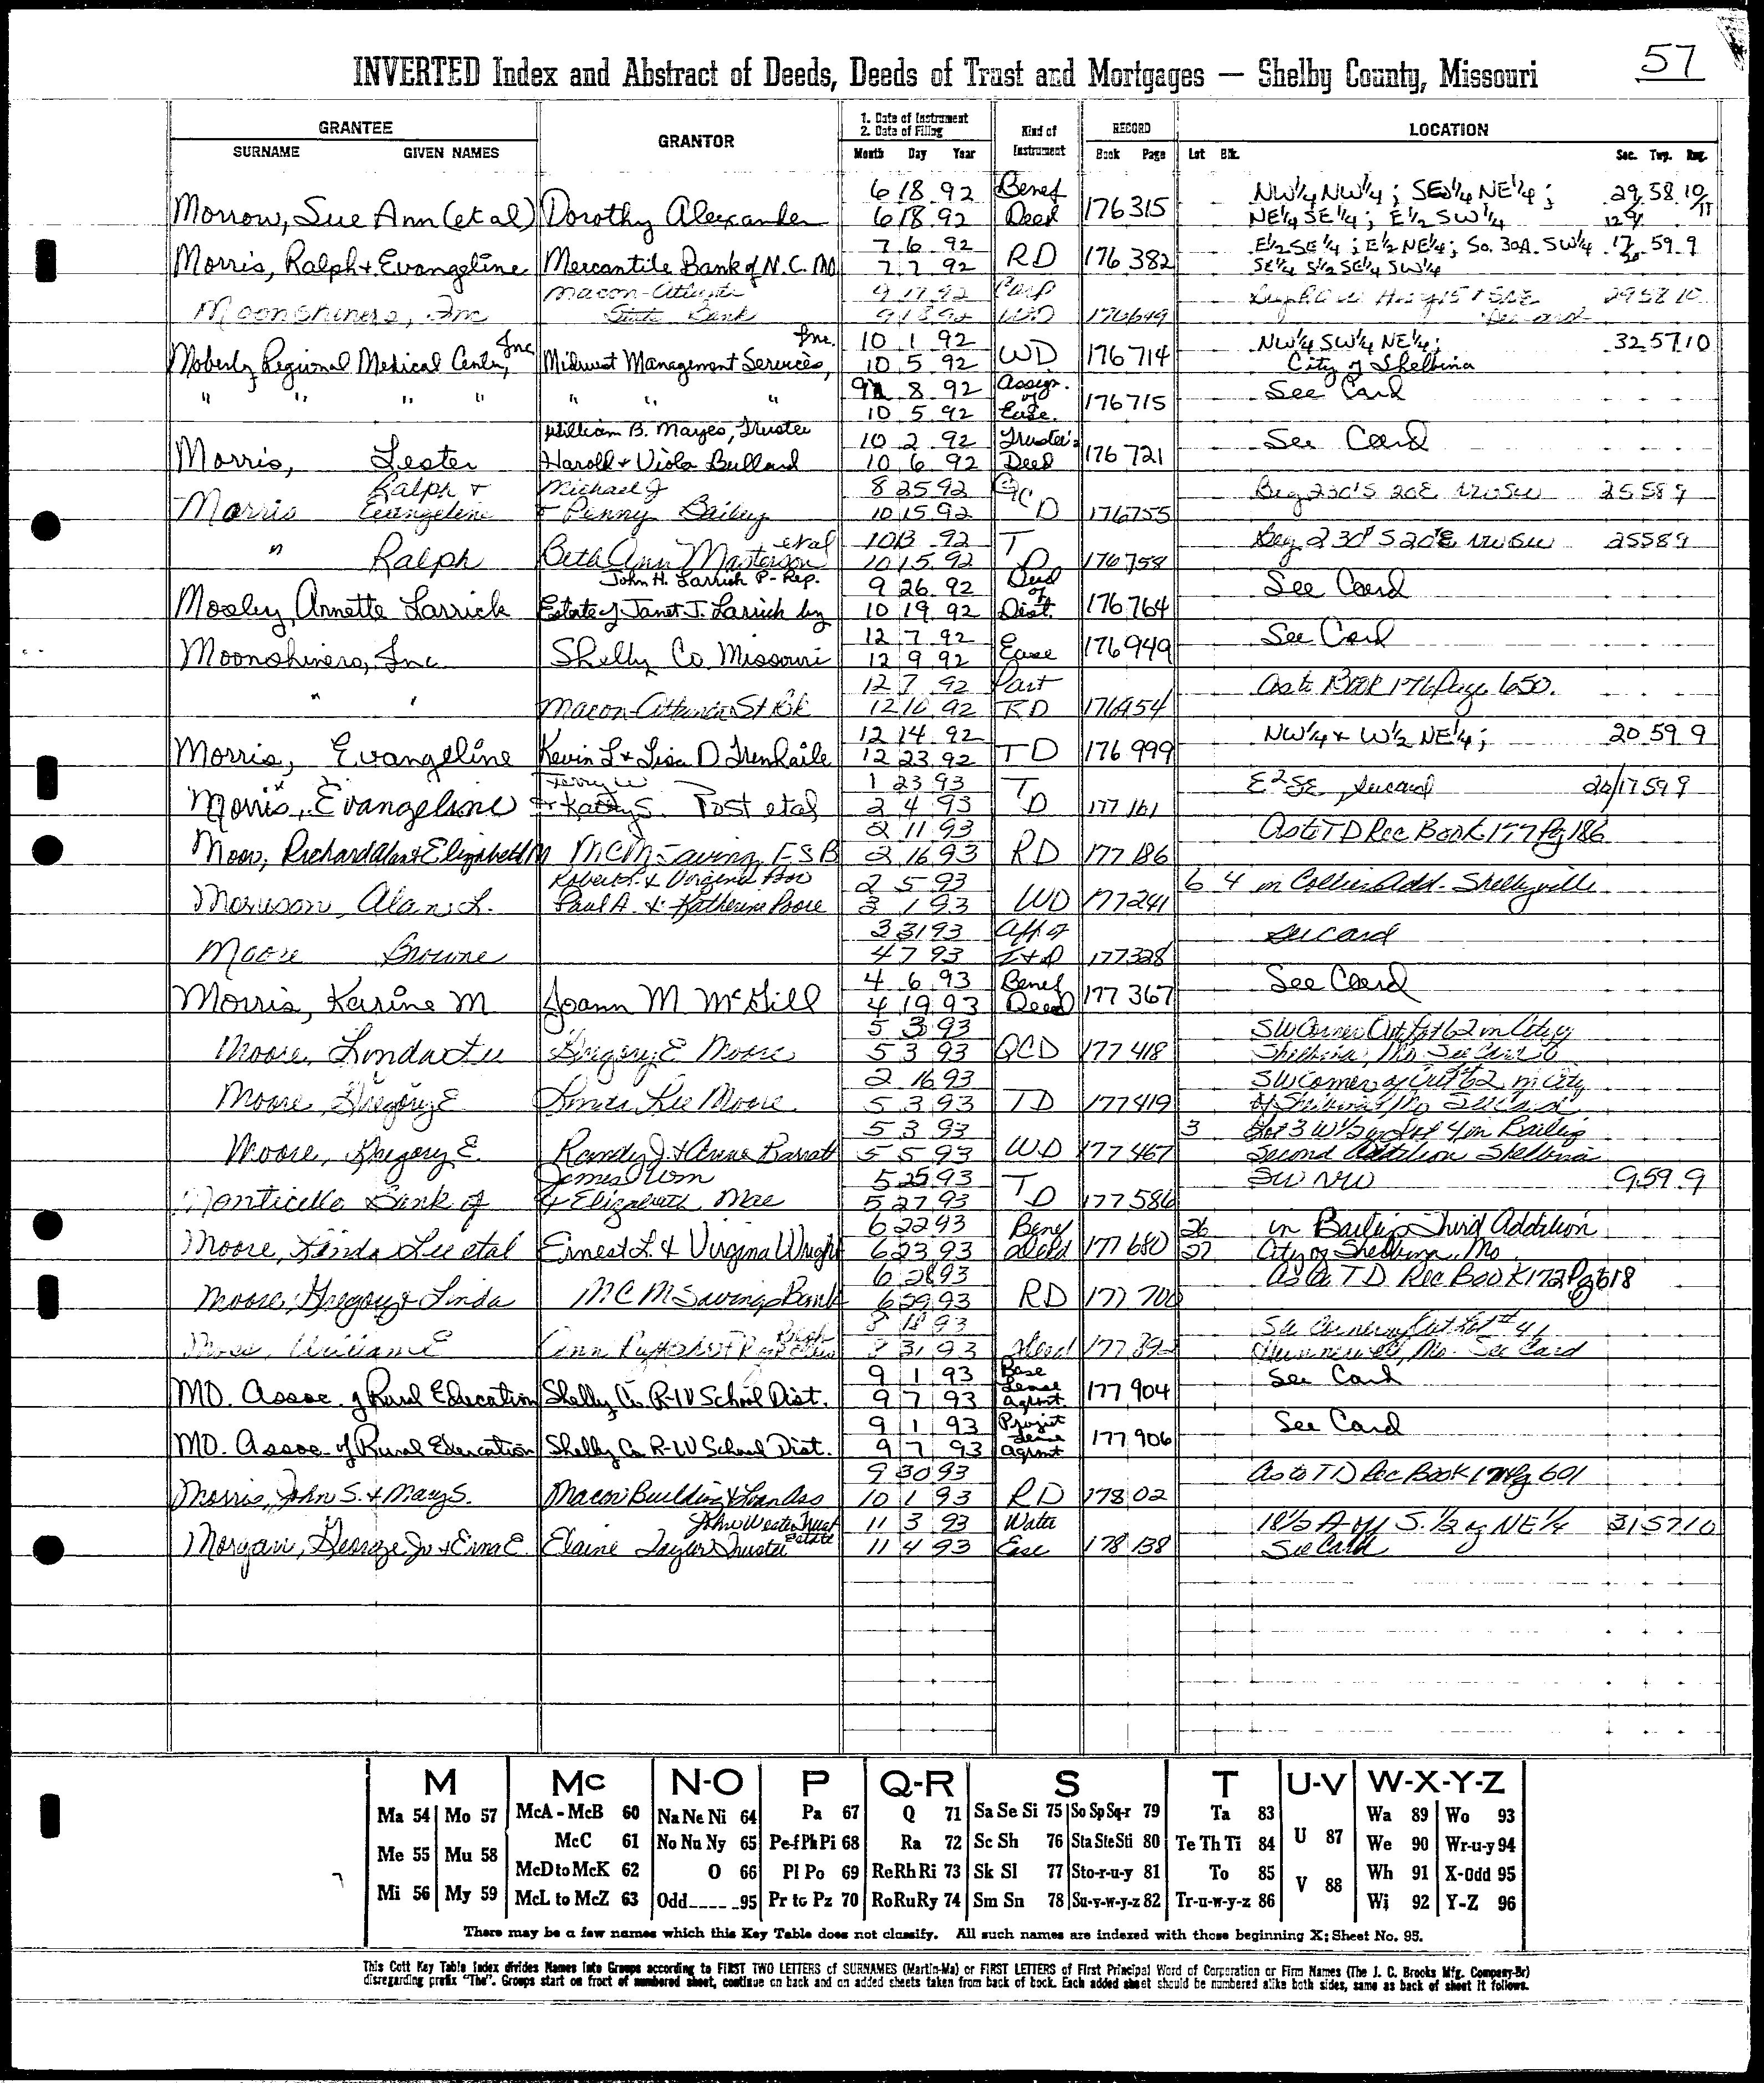 57
INVERTED Index and Abstract of Deeds, Deeds of Trust and Mortgages — Shelby County, Missouri
GRANTEE
SURNAME GIVEN NAMES
GRANTOR
1. Date of Instrument
2. Date of Filing
Month Day Year
Kind of Instrument
RECORD
Book Page
LOCATION
Lot Blk. Sec. Twp. Rng.
6 18 92 Benef NW¼ NW¼; SE¼ NE¼; 29 58 10/11
Morrow, Sue Ann (et al) Dorothy Alexander 6 18 92 Deed 176 315 NE¼ SE¼; E½ SW¼
7 6 92 E½ SE¼; E½ NE¼; So. 30A. SW¼ 17 59 9
Morris, Ralph & Evangeline Mercantile Bank of N.C. Mo 7 7 92 RD 176 382 SE¼ S½ SE¼ SW¼ 20
Macon-Atlanta 9 17 92 Corp 29 58 10
Moonshiners, Inc State Bank 9 18 92 WD 176 649
Inc. Inc. 10 1 92 NW¼ SW¼ NE¼; 32 57 10
Moberly Regional Medical Center, Midwest Management Services, 10 5 92 WD 176 714 City of Shelbina
8 92 Assign. of See Card
" " " " " " " 10 5 92 Ease. 176 715
William B. Mayes, Trustee 10 2 92 Trustee's See Card
Morris, Lester Harold & Viola Bullard 10 6 92 Deed 176 721
Ralph & Michael J 8 25 92 Q Beg 230'S 20E NWSW 25 58 9
Morris Evangeline & Penny Bailey 10 15 92 CD 176 755
et al 10 13 92 T Beg 230'S 20'E NWSW 25 58 9
" Ralph Beth Ann Masterson 10 15 92 D 176 758
John H. Larrick P-Rep. 9 26 92 Deed of See Card
Mosley, Annette Larrick Estate of Janet J. Larrick by 10 19 92 Dist. 176 764
12 7 92 See Card
Moonshiners, Inc Shelby Co Missouri 12 9 92 Ease 176 949
12 7 92 Part As to Book 176 Page 650.
" " Macon-Atlanta St Bk 12 10 92 RD 176 954
12 14 92 NW¼ & W½ NE¼; 20 59 9
Morris, Evangeline Kevin L & Lisa D. Trenhaile 12 23 92 TD 176 999
Terry W 1 23 93 T E²SE, See card 20/17 59 9
Morris, Evangeline & Kathy S. Post et al 2 4 93 D 177 161
2 11 93 As to TD Rec Book 177 Pg 186
Moor, Richard Alan & Elizabeth M MCM Saving F S B 2 16 93 RD 177 186
Robert L. & Virginia Poor 2 5 93 6 4 in Collier Add. Shelbyville
Morrison, Alan L. Paul A. & Katherine Poore 3 1 93 WD 177 241
3 31 93 Aff of See card
Moore Browne 4 7 93 177 328
4 6 93 Benef See Card
Morris, Karine M Joann M McGill 4 19 93 Deed 177 367
5 3 93 SW Corner Out Lot 62 in City
Moore, Linda Lee Gregory E Moore 5 3 93 QCD 177 418 Shelbina, Mo See Card
2 16 93 SW Corner of Out 62 in City
Moore, Gregory E Linda Lee Moore 5 3 93 TD 177 419 of Shelbina, Mo See Card
5 3 93 3 Lot 3 W½ of Lot 4 in Bailey
Moore, Gregory E. Randy J. & Anna Barrett 5 5 93 WD 177 467 Second Addition Shelbina
James Wm 5 25 93 T SW NW 9 59 9
Monticello Bank of & Elizabeth Mae 5 27 93 D 177 586
6 22 93 Benef 26 in Baileys Third Addition
Moore, Linda Lee et al Ernest L. & Virginia Wright 6 23 93 Deed 177 680 27 City of Shelbina, Mo
6 28 93 As to TD Rec Book 172 Pg 618
Moore, Gregory & Linda MCM Savings Bank 6 29 93 RD 177 700
8 18 93
William E Ann 8 31 93 Deed 177 892 Hunnewell, Mo. See Card
9 1 93 Base See Card
MO. Assoc. of Rural Education Shelby Co. R-IV School Dist. 9 7 93 Lease Agmt. 177 904
9 1 93 Project See Card
MO. Assoc. of Rural Education Shelby Co. R-IV School Dist. 9 7 93 Lease Agmt 177 906
9 30 93 As to TD Rec Book Pg 601
Morris, John S. & Mary S. Macon Building & Loan Ass 10 1 93 RD 178 02
John Trust Estate 11 3 93 Water 18½ A off S.½ of NE¼ 31 57 10
Morgan, George Jr & Erma E. Elaine Taylor Trustee 11 4 93 Ease 178 138 See Card
M Mc N-O P Q-R S T U-V W-X-Y-Z
Ma 54 Mo 57 McA - McB 60 Na Ne Ni 64 Pa 67 Q 71 Sa Se Si 75 So Sp Sq-r 79 Ta 83 U 87 Wa 89 Wo 93
Me 55 Mu 58 McC 61 No Nu Ny 65 Pe-f Ph Pi 68 Ra 72 Sc Sh 76 Sta Ste Sti 80 Te Th Ti 84 We 90 Wr-u-y 94
McD to McK 62 O 66 Pl Po 69 Re Rh Ri 73 Sk Sl 77 Sto-r-u-y 81 To 85 V 88 Wh 91 X-Odd 95
Mi 56 My 59 McL to McZ 63 Odd 95 Pr to Pz 70 Ro Ru Ry 74 Sm Sn 78 Su-v-w-y-z 82 Tr-u-w-y-z 86 Wi 92 Y-Z 96
There may be a few names which this Key Table does not classify. All such names are indexed with those beginning X; Sheet No. 95.
This Cott Key Table Index divides Names into Groups according to FIRST TWO LETTERS of SURNAMES (Martin-Ma) or FIRST LETTERS of First Principal Word of Corporation or Firm Names (The J. C. Brooks Mfg. Company-Br)
disregarding prefix "The". Groups start on front of numbered sheet, continue on back and on added sheets taken from back of book. Each added sheet should be numbered alike both sides, same as back of sheet it follows.